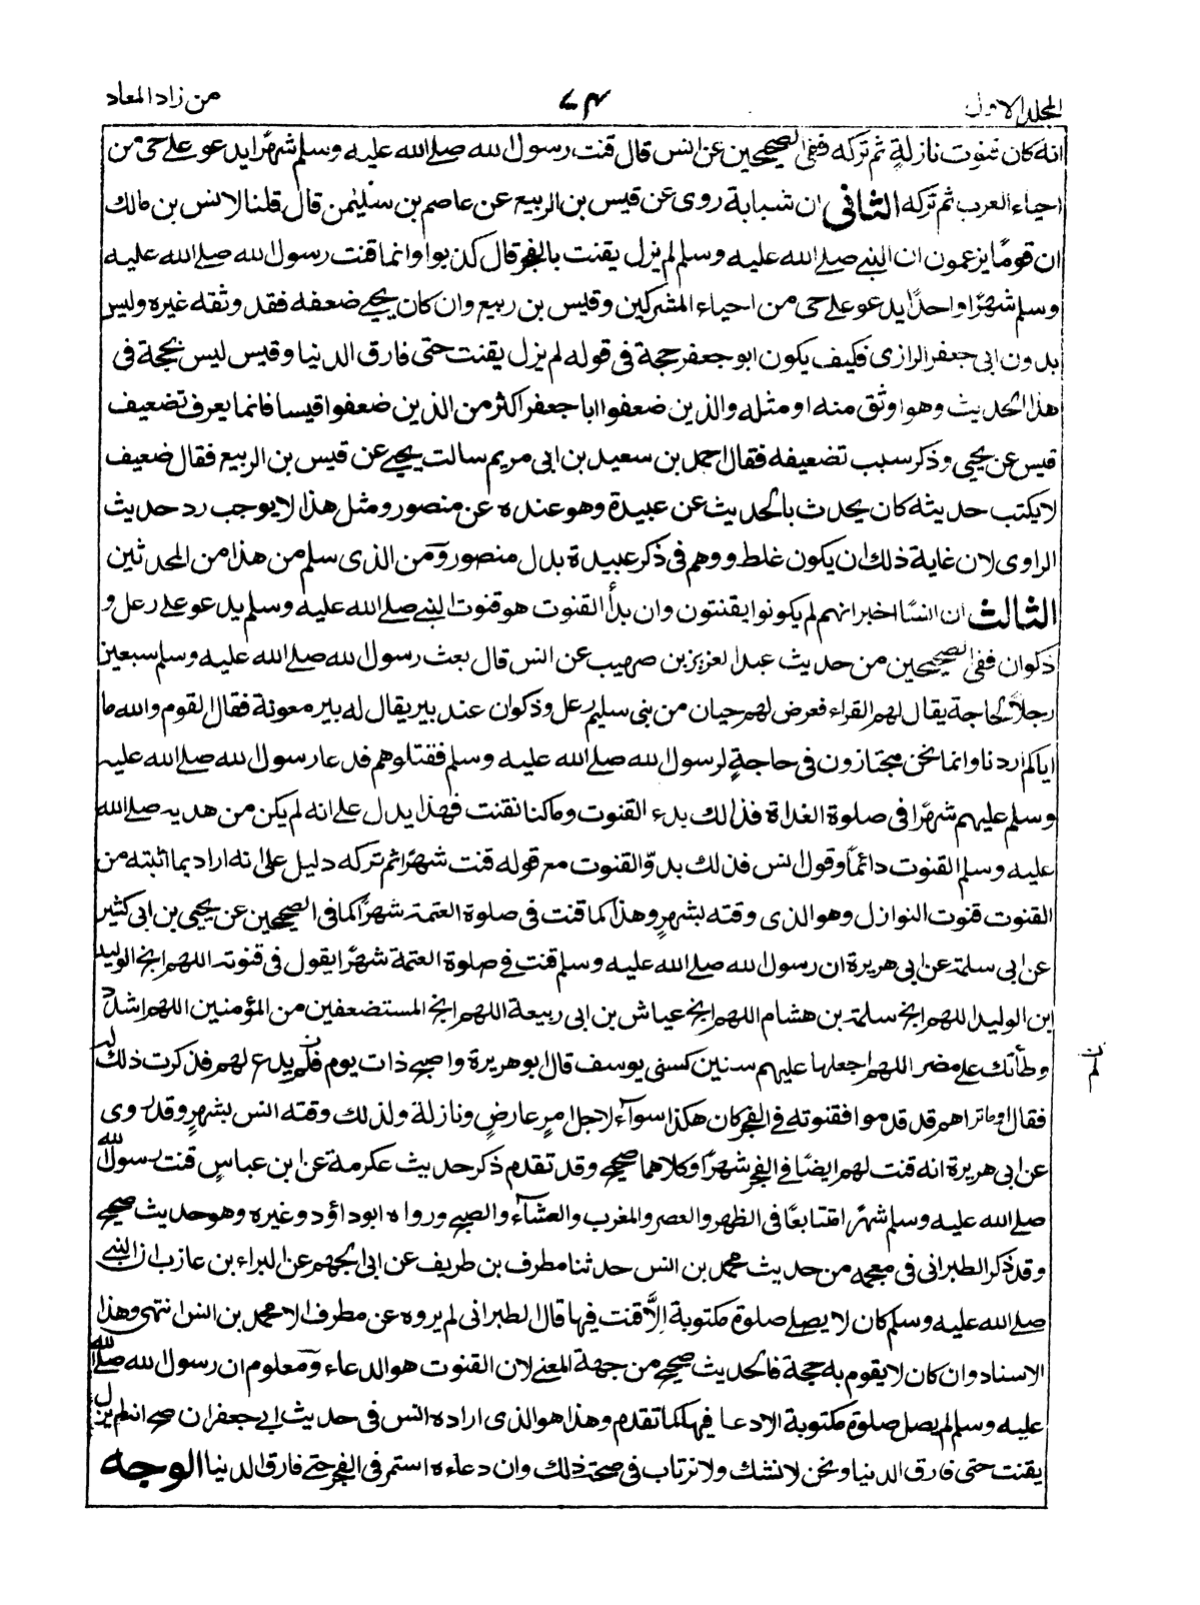 المجلد الاول
٧٤
من زاد المعاد
انه كان قنوت نازلةٍ ثم تركه ففى الصحيحين عن انس قال قنت رسول الله صلے الله عليه وسلم شهرًا يدعو علے حى من
احياء العرب ثم تركه الثانى ان شبابة روى عن قيس بن الربيع عن عاصم بن سليمن قال قلنا لانس بن مالك
ان قومًا يزعمون ان النبے صلے الله عليه وسلم لم يزل يقنت بالفجر قال كذبوا وانما قنت رسول الله صلے الله عليه
وسلم شهرًا واحدًا يدعو علے حى من احياء المشركين وقيس بن ربيع وان كان يحيے ضعفه فقد وثقه غيره وليس
بدون ابى جعفر الرازى فكيف يكون ابو جعفر حجة فى قوله لم يزل يقنت حتى فارق الدنيا وقيس ليس بحجة فى
هذا الحديث وهو اوثق منه او مثله والذين ضعفوا ابا جعفر اكثر من الذين ضعفوا قيسا فانما يعرف تضعيف
قيس عن يحيى وذكر سبب تضعيفه فقال احمد بن سعيد بن ابى مريم سالت يحيے عن قيس بن الربيع فقال ضعيف
لا يكتب حديثه كان يحدث بالحديث عن عبيدة وهو عنده عن منصور ومثل هذا لا يوجب رد حديث
الراوى لان غاية ذلك ان يكون غلط ووهم فى ذكر عبيدة بدل منصور ومن الذى سلم من هذا من المحدثين
الثالث ان انسًا اخبر انهم لم يكونوا يقنتون وان بدأ القنوت هو قنوت النبے صلے الله عليه وسلم يدعو علے رعل و
ذكوان ففى الصحيحين من حديث عبد العزيز بن صهيب عن انس قال بعث رسول الله صلے الله عليه وسلم سبعين
رجلاً لحاجة يقال لهم القراء فعرض لهم حيان من بنى سليم رعل وذكوان عند بير يقال له بير معونة فقال القوم والله ما
اياكم اردنا وانما نحن مجتازون فى حاجةٍ لرسول الله صلے الله عليه وسلم فقتلوهم فدعا رسول الله صلے الله عليه
وسلم عليهم شهرًا فى صلوة الغداة فذالك بدء القنوت وما كنا نقنت فهذا يدل علے انه لم يكن من هديه صلے الله
عليه وسلم القنوت دائمًا وقول انس فذلك بدوّ القنوت مع قوله قنت شهرًا ثم تركه دليل على انه اراد بما اثبته من
القنوت قنوت النوازل وهو الذى وقته بشهرٍ وهذا كما قنت فى صلوة العتمة شهرًا كما فى الصحيحين عن يحيى بن ابى كثير
عن ابى سلمة عن ابى هريرة ان رسول الله صلے الله عليه وسلم قنت فى صلوة العتمة شهرًا يقول فى قنوته اللهم انج الوليد
ابن الوليد اللهم انج سلمة بن هشام اللهم انج عياش بن ابى ربيعة اللهم انج المستضعفين من المؤمنين اللهم اشدد
وطأتك علے مضر اللهم اجعلها عليهم سنين كسنى يوسف قال ابو هريرة واصبح ذات يوم فلم يدع لهم فذكرت ذلك له
فقال اوماتراهم قد قدموا فقنوته فى الفجر كان هكذا سوآء لاجل امرٍ عارضٍ ونازلة ولذلك وقته انس بشهرٍ وقد روى
عن ابى هريرة انه قنت لهم ايضًا فى الفجر شهرًا وكلاهما صحيح وقد تقدم ذكر حديث عكرمة عن ابن عباسٍ قنت رسول الله
صلے الله عليه وسلم شهرًا متتابعًا فى الظهر والعصر والمغرب والعشآء والصبح ورواه ابو داؤد وغيره وهو حديث صحيح
وقد ذكر الطبرانى فى معجمه من حديث محمد بن انس حدثنا مطرف بن طريف عن ابى الجهم عن البراء بن عازب ان النبے
صلے الله عليه وسلم كان لا يصلے صلوة مكتوبة اِلّا قنت فيها قال الطبرانى لم يروه عن مطرف الا محمد بن انس انتهى وهذا
الاسناد وان كان لا يقوم به حجة فالحديث صحيح من جهة المعنے لان القنوت هو الدعاء ومعلوم ان رسول الله صلے الله
عليه وسلم لم يصل صلوة مكتوبة الا دعا فيها كما تقدم وهذا هو الذى اراده انس فى حديث ابے جعفر ان صح انه لم يزل
يقنت حتى فارق الدنيا ونحن لا نشك ولا نرتاب فى صحة ذلك وان دعاءه استمر فى الفجر حتے فارق الدنيا الوجه